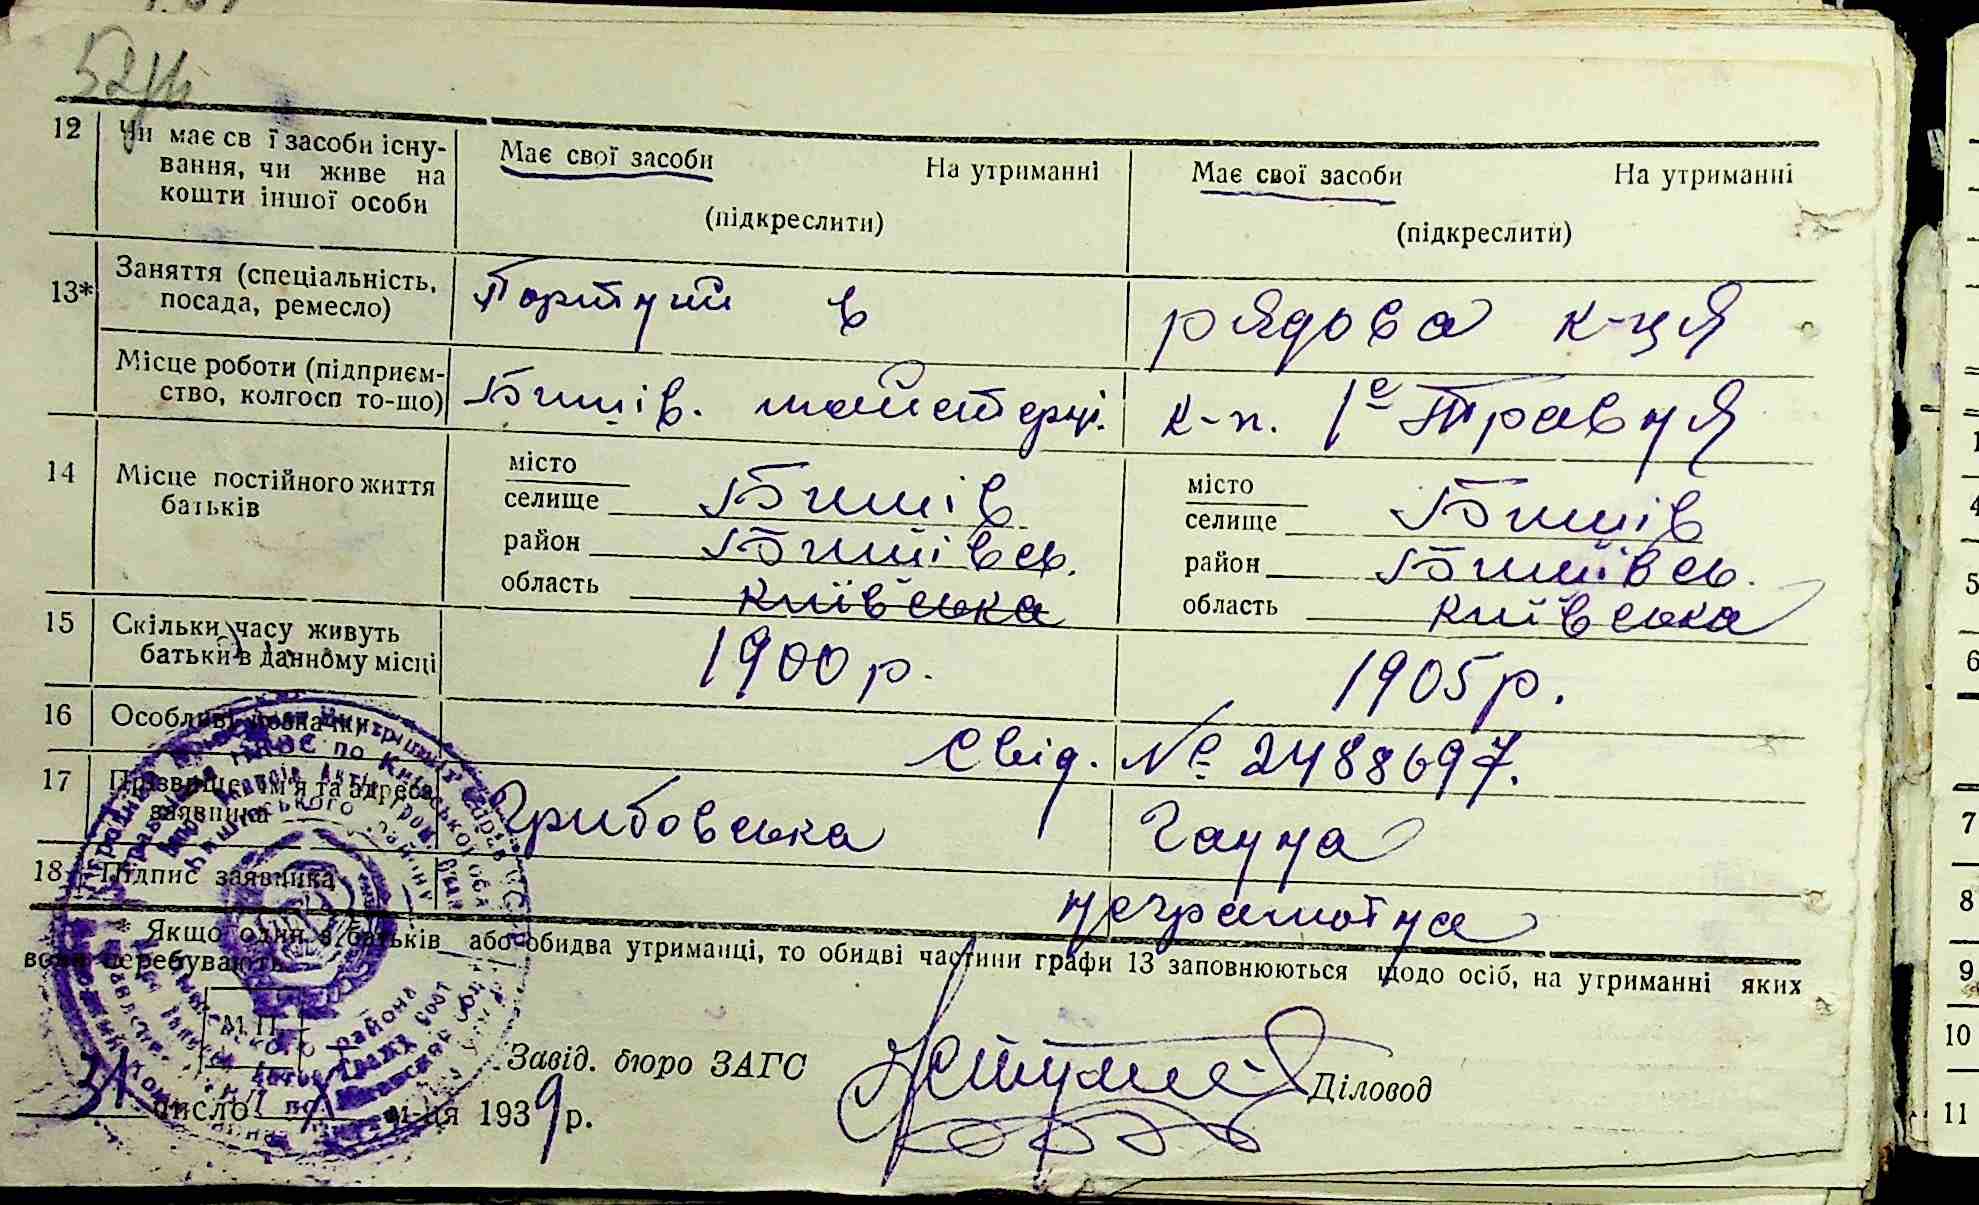 12 Чи має св ї засоби існу-
вання, чи живе на
кошти іншої особи
Має свої засоби На утриманні
(підкреслити)
Має свої засоби На утриманні
(підкреслити)
13* Заняття (спеціальність,
посада, ремесло)
Портний в
рядова к-ця
Місце роботи (підприєм-
ство, колгосп то-що)
Бишів. майстерні.
к-п. 1е Травня
14 Місце постійного життя
батьків
місто
селище Бишів
район Бишівсь.
область Київська
місто
селище Бишів
район Бишівсь.
область Київська
15 Скільки часу живуть
батьки в данному місці
1900 р.
1905 р.
16 Особливі позначки
Свід. № 2488697.
17 Прізвище ім'я та адреса
заявника
Грибовська Ганна
18 Підпис заявника
неграмотна
* Якщо один з батьків або обидва утриманці, то обидві частини графи 13 заповнюються щодо осіб, на утриманні яких
вони перебувають
М.П.
Завід. бюро ЗАГС
Діловод
31 число м-ця 1939 р.
4
5
6
7
8
9
10
11